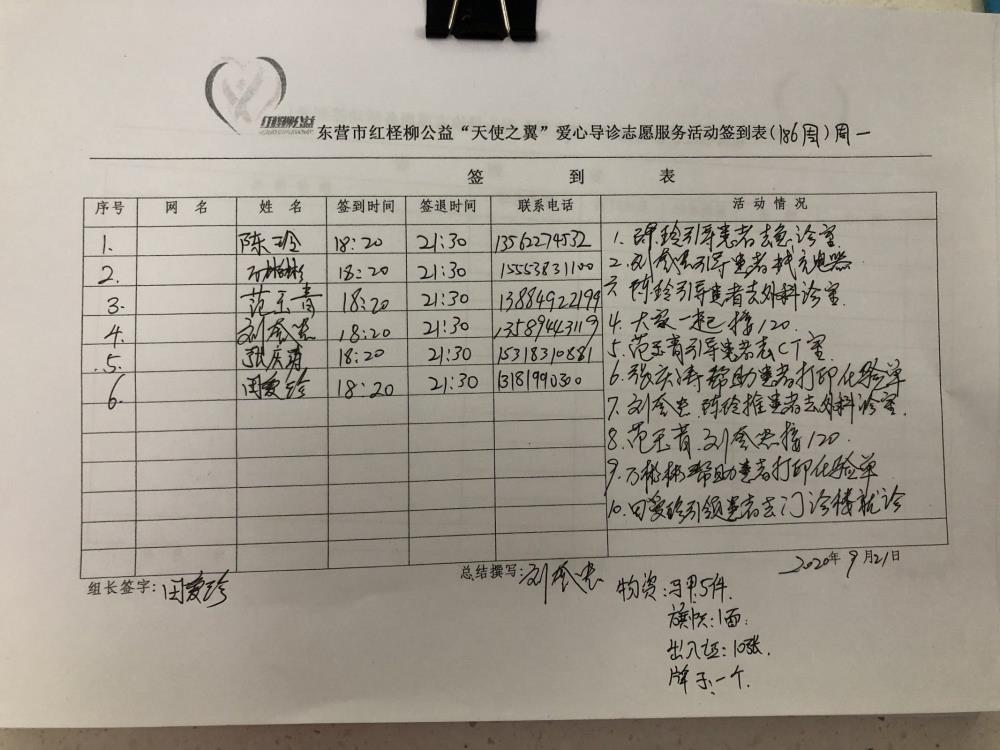 红柽柳公益
东营市红柽柳公益“天使之翼”爱心导诊志愿服务活动签到表(186周)周一
签 到 表
序号 网 名 姓 名 签到时间 签退时间 联系电话 活 动 情 况
1. 陈玲 18:20 21:30 13562274532 1. 陈玲引导患者去急诊室
2. 万彬彬 18:20 21:30 15553831100 2. 刘金忠引导患者找充电器
3. 范玉青 18:20 21:30 13884922199 3. 陈玲引导患者去外科诊室
4. 刘金忠 18:20 21:30 13589443119 4. 大家一起接120.
5. 张庆涛 18:20 21:30 15318310881 5. 范玉青引导患者去CT室
6. 田爱珍 18:20 21:30 13181990300 6. 张庆涛帮助患者打印化验单
7. 刘金忠 陈玲推患者去外科诊室.
8. 范玉青.刘金忠接120.
9. 万彬彬帮助患者打印化验单
10. 田爱珍引领患者去门诊楼就诊
2020年9月21日
组长签字:田爱珍 总结撰写:刘金忠
物资:马甲5件
旗帜:1面.
出入证:10张.
牌子:一个.